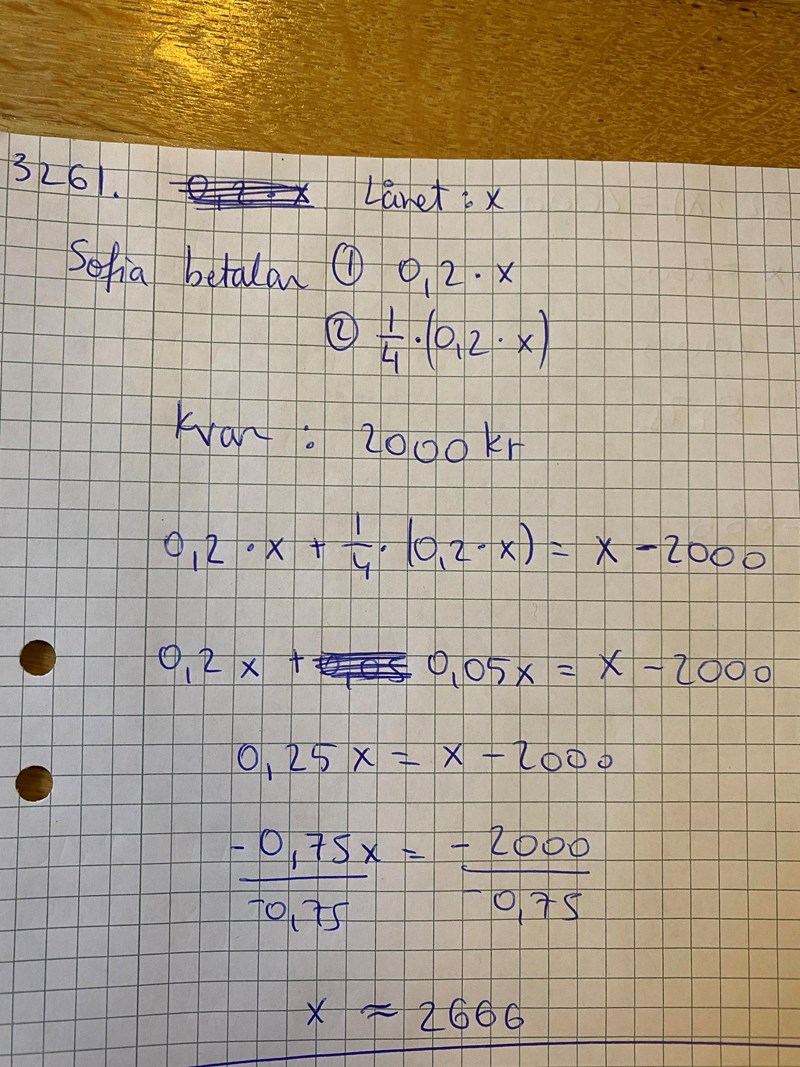 3261. Lånet : x
Sofia betalar ① 0,2 · x
② 1/4 · (0,2 · x)
Kvar : 2000 kr
0,2 · x + 1/4 · (0,2 · x) = x - 2000
0,2 x + 0,05x = x - 2000
0,25 x = x - 2000
-0,75x / -0,75 = -2000 / -0,75
x ≈ 2666